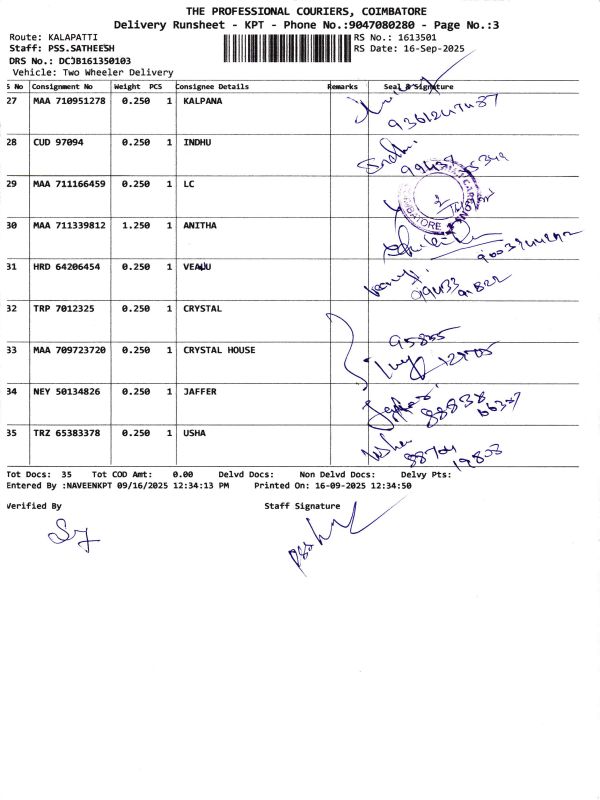 THE PROFESSIONAL COURIERS, COIMBATORE
Delivery Runsheet - KPT - Phone No.:9047080280 - Page No.:3
Route: KALAPATTI RS No.: 1613501
Staff: PSS.SATHEESH RS Date: 16-Sep-2025
DRS No.: DCJB161350103
Vehicle: Two Wheeler Delivery
S No Consignment No Weight PCS Consignee Details Remarks Seal & Signature
27 MAA 710951278 0.250 1 KALPANA
28 CUD 97094 0.250 1 INDHU
Indhu
29 MAA 711166459 0.250 1 LC
30 MAA 711339812 1.250 1 ANITHA
31 HRD 64206454 0.250 1 VENU
32 TRP 7012325 0.250 1 CRYSTAL
95855
33 MAA 709723720 0.250 1 CRYSTAL HOUSE
12505
34 NEY 50134826 0.250 1 JAFFER
88838
35 TRZ 65383378 0.250 1 USHA
Usha
88704
19808
Tot Docs: 35 Tot COD Amt: 0.00 Delvd Docs: Non Delvd Docs: Delvy Pts:
Entered By :NAVEENKPT 09/16/2025 12:34:13 PM Printed On: 16-09-2025 12:34:50
Verified By Staff Signature